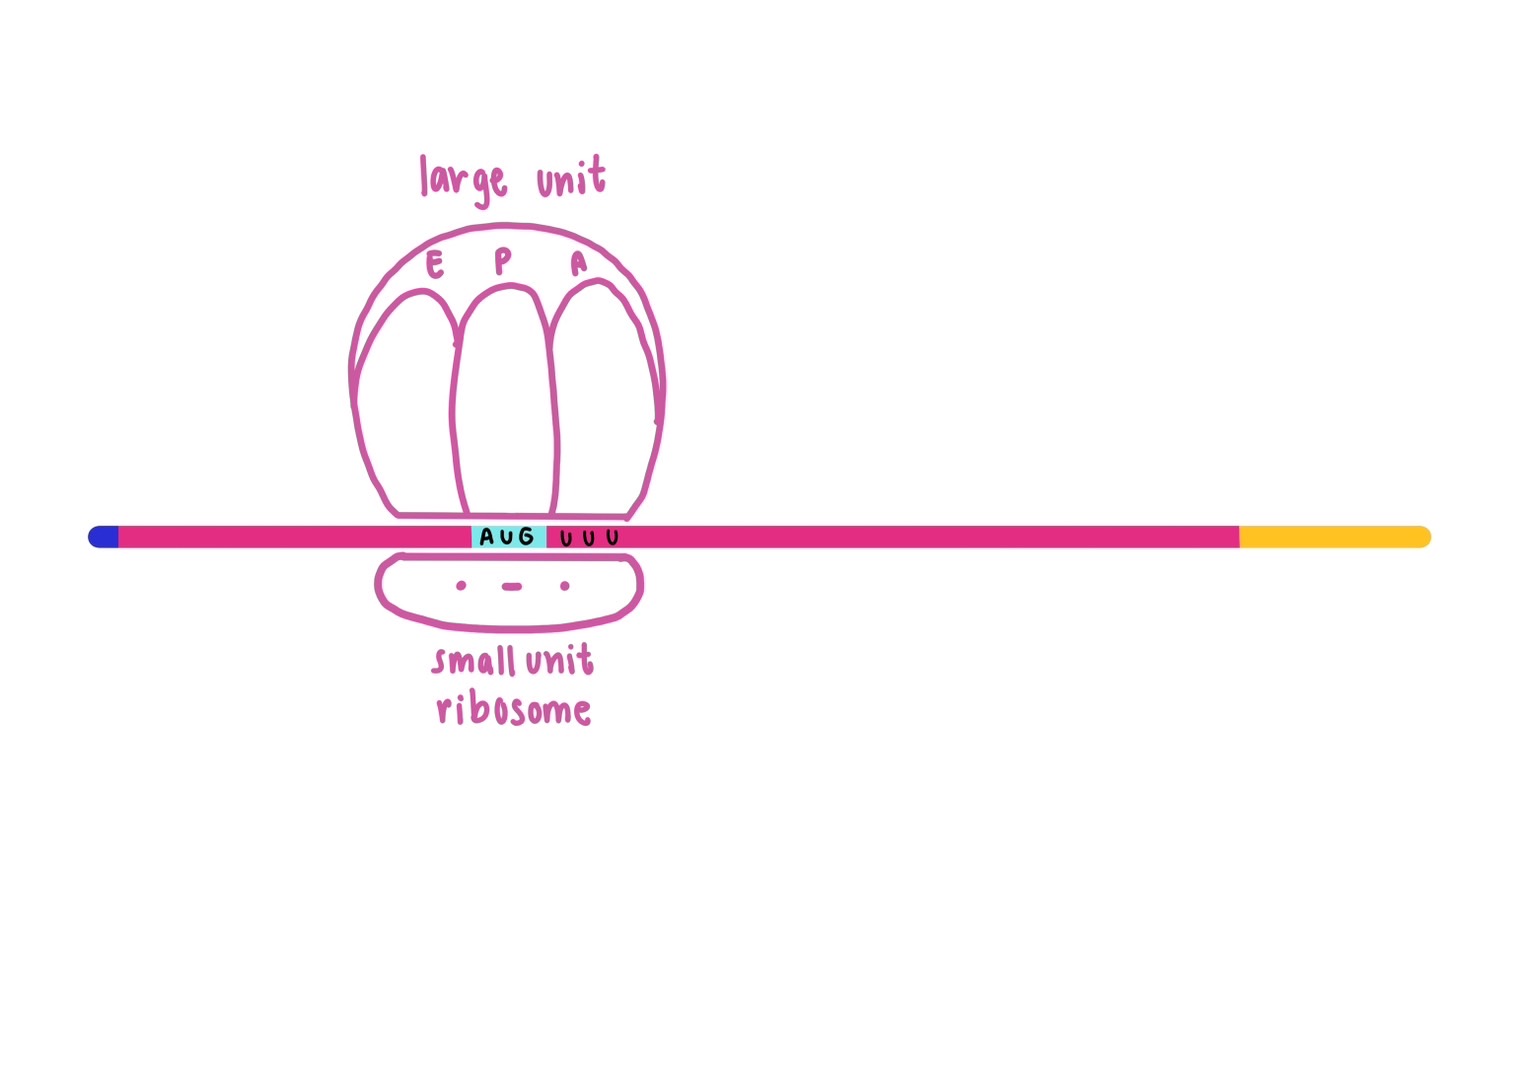 large unit
E P A
AUG UUU
small unit
ribosome